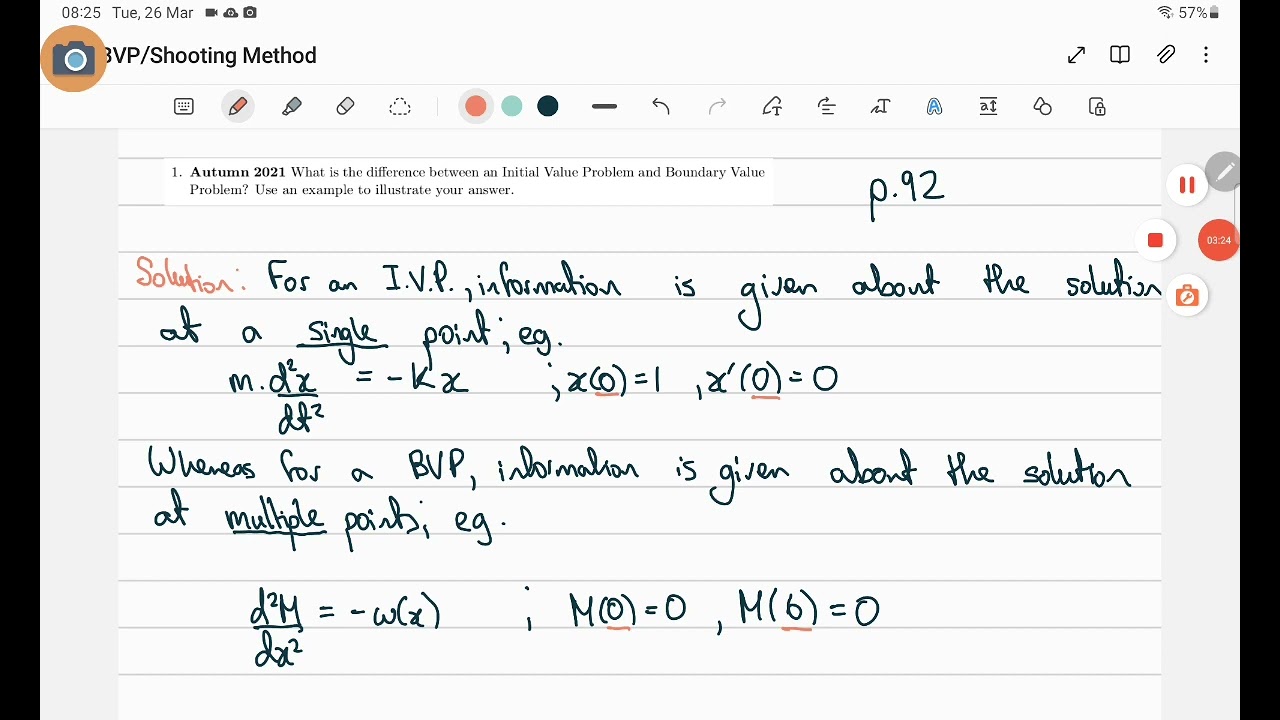 08:25 Tue, 26 Mar 57%
BVP/Shooting Method
1. Autumn 2021 What is the difference between an Initial Value Problem and Boundary Value
Problem? Use an example to illustrate your answer.
p.92
03:24
Solution: For an I.V.P., information is given about the solution
at a single point; eg.
m. d²x/dt² = -Kx ; x(0)=1 , x'(0)=0
Whereas for a BVP, information is given about the solution
at multiple points; eg.
d²M/dx² = -w(x) ; M(0)=0 , M(6)=0